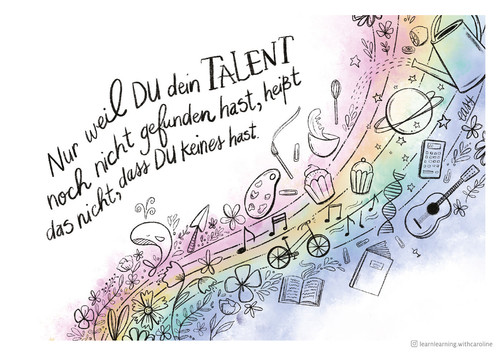 Nur weil DU dein TALENT
noch nicht gefunden hast, heißt
das nicht, dass DU keines hast.
learnlearning.withcaroline